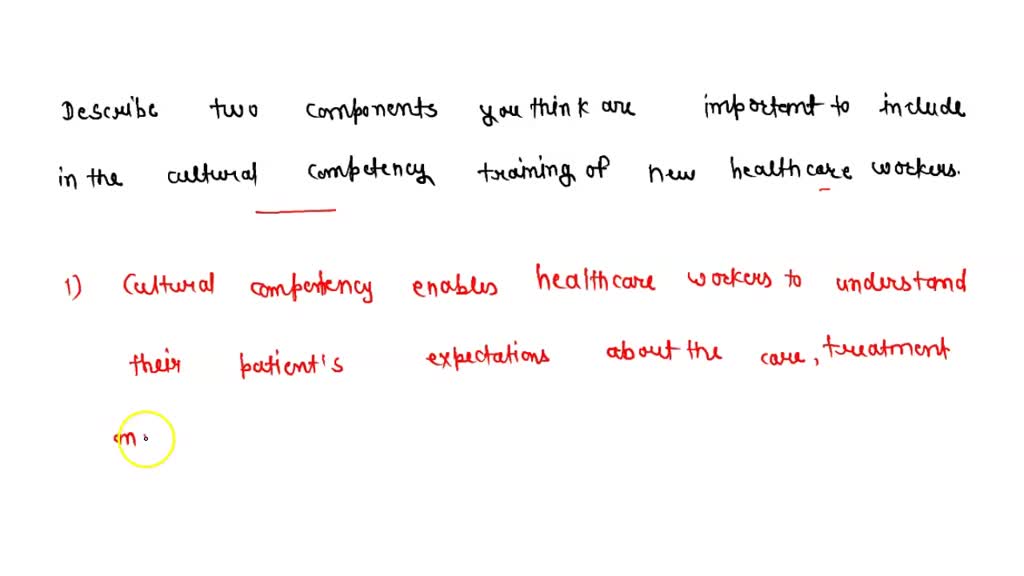 Describe two components you think are important to include
in the cultural competency training of new healthcare workers.
1) Cultural competency enables healthcare workers to understand
their patient's expectations about the care, treatment